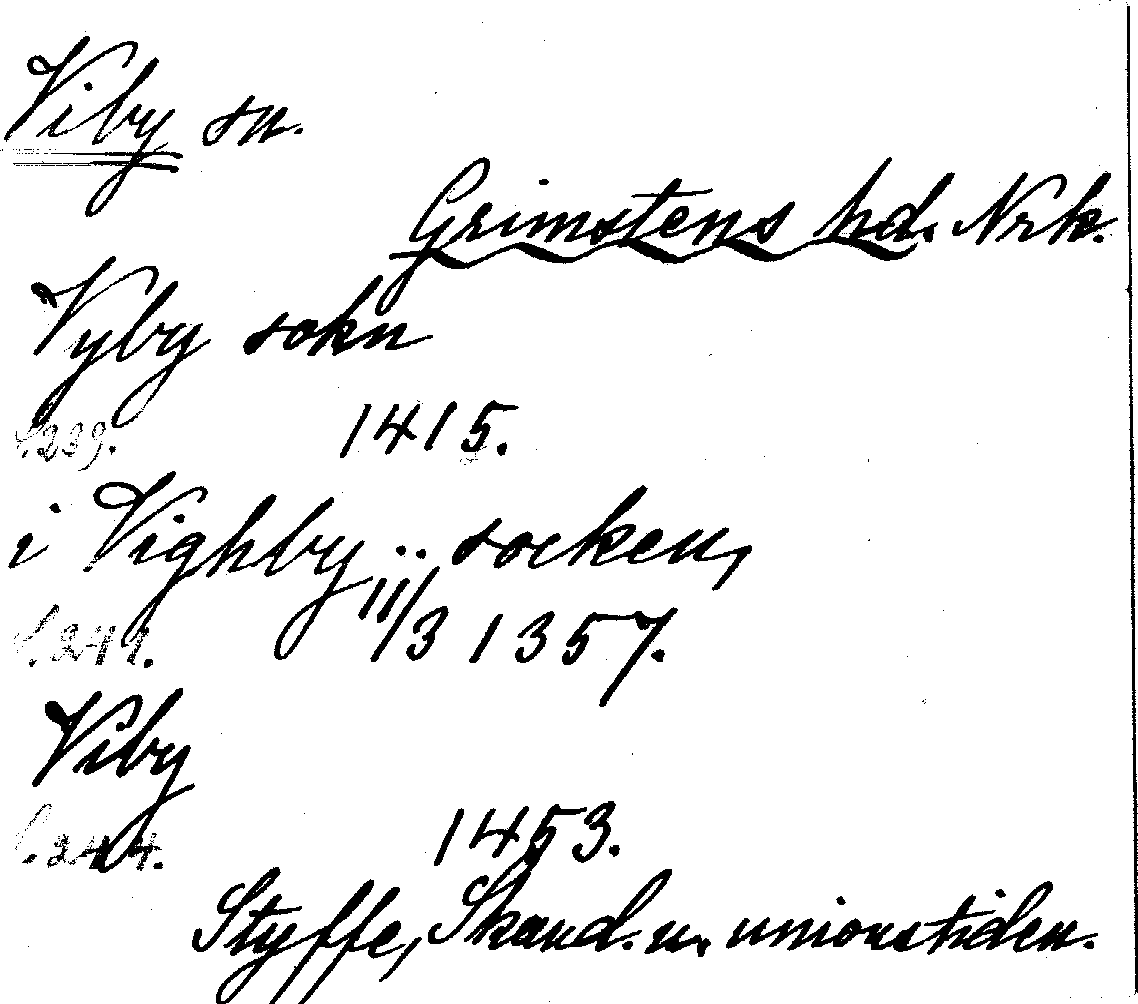 Viby sn.
Grimstens hd. Nrk.
Vyby sokn
s. 239. 1415.
i Vighby .. socken,
s. 241. 11/3 1357.
Viby
s. 244. 1453.
Styffe, Skand. u. unionstiden.